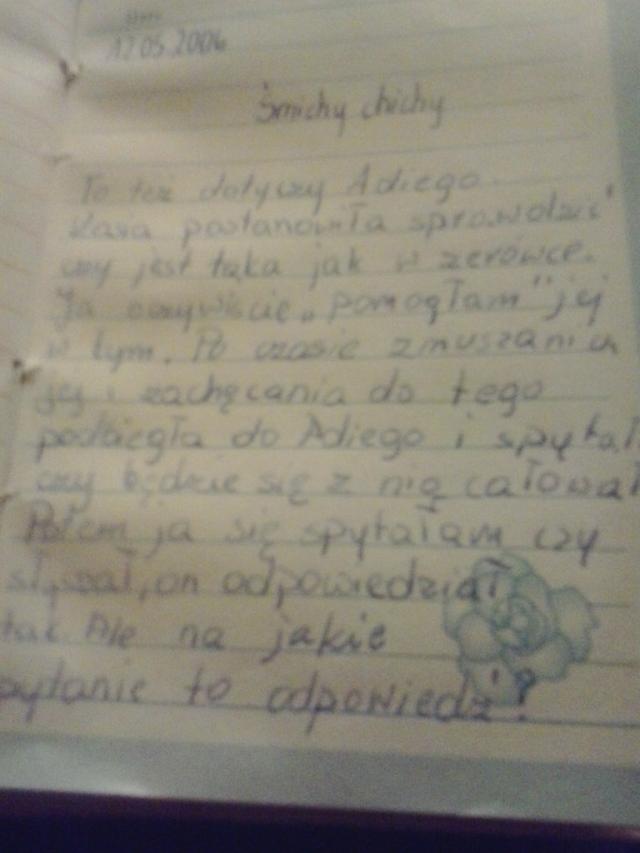 12.05.2006
Śmichy chichy
To też dotyczy Adiego.
Kasia postanowiła sprawdzić
czy jest taka jak w zerówce.
Ja oczywiście „pomogłam" jej
w tym. Po czasie zmuszania
jej i zachęcania do tego
podbiegła do Adiego i spytał
czy będzie się z nią całował
Potem ja się spytałam czy
słyszał, on odpowiedział
tak. Ale na jakie
pytanie to odpowiedź?